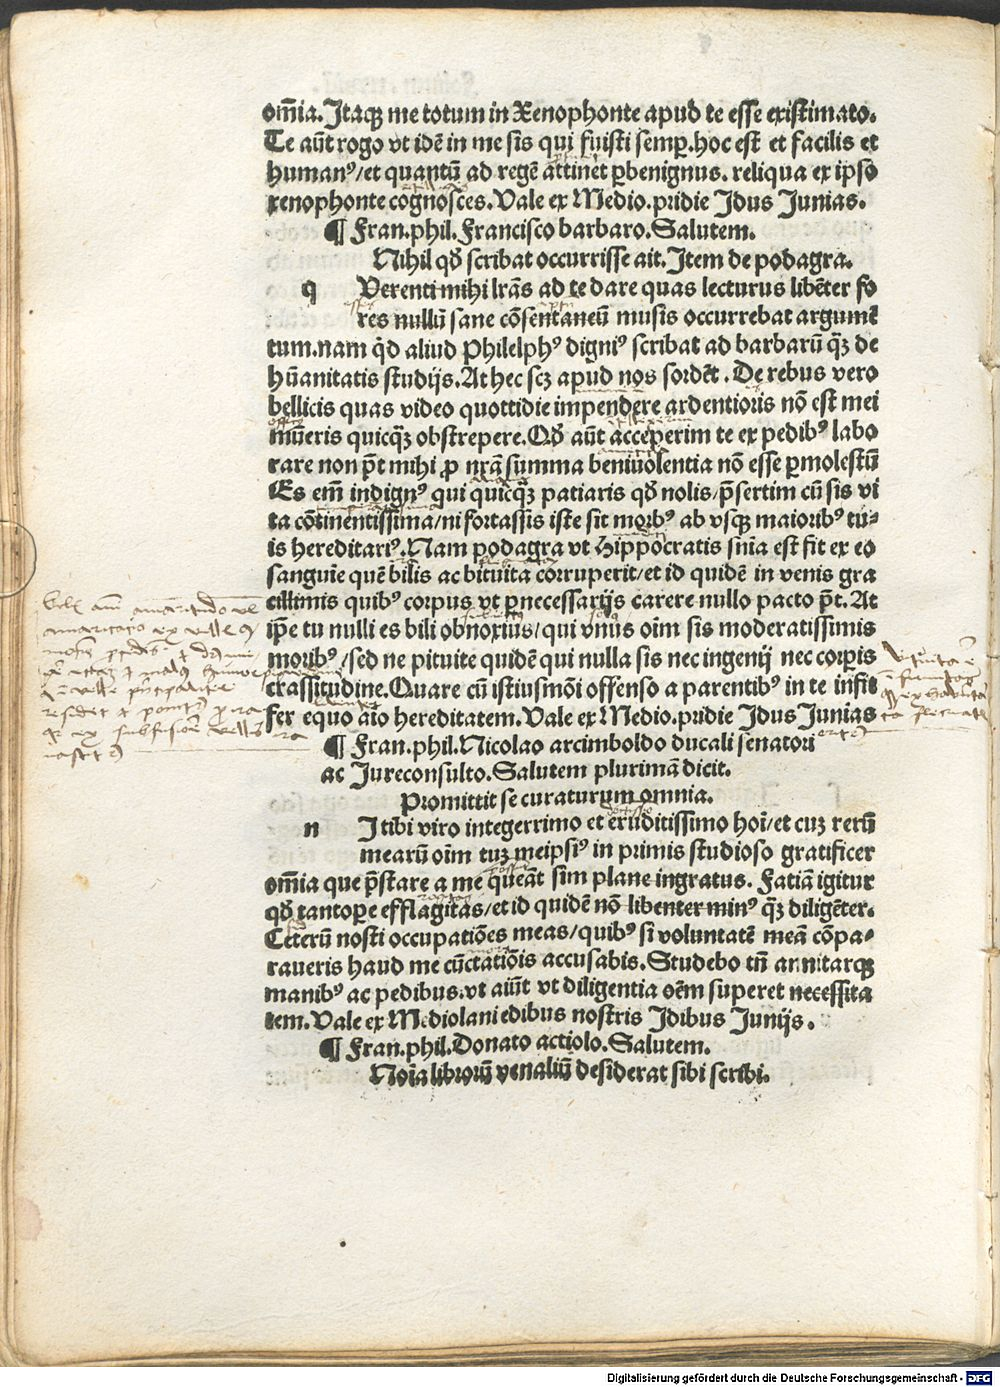 om̄ia. Itaqꝫ me totum in Xenophonte apud te esse existimato.
Te aūt rogo vt idē in me sis qui fuisti semꝑ. hoc est et facilis et
humanꝰ/et quantū ad regē attinet ꝑbenignus. reliqua ex ipso
xenophonte cognosces. Vale ex Medio. pridie Idus Junias.
¶ Fran. phil. Francisco barbaro. Salutem.
Nihil qđ scribat occurrisse ait. Item de podagra.
q Verenti mihi lrās ad te dare quas lecturus libēter fo
res nullū sane cōsentaneū musis occurrebat argumē
tum. nam qd aliud Philelphꝰ digniꝰ scribat ad barbarū qꝫ de
hūanitatis studijs. At hec scꝫ apud nos sordēt. De rebus vero
bellicis quas video quottidie impendere ardentioris nō est mei
mūeris quicqꝫ obstrepere. Qđ aūt acceperim te ex pedibꝰ labo
rare non pōt mihi ꝓ nrā summa beniuolentia nō esse ꝑmolestū
Es em̄ indignꝰ qui quicqꝫ patiaris qđ nolis/p̄sertim cū sis vi
ta cōtinentissima/ni fortassis iste sit morbꝰ ab vsqꝫ maioribꝰ tu⸗
is hereditariꝰ. Nam podagra vt Hippocratis snīa est fit ex eo
sanguīe quē bilis ac bituita corruperit/et id quidē in venis gra
cillimis quibꝰ corpus vt ꝑnecessarijs carere nullo pacto pōt. At
ip̄e tu nulli es bili obnoxius/qui vnus oīm sis moderatissimis
moribꝰ/sed ne pituite quidē qui nulla sis nec ingenij nec corꝑis
crassitudine. Quare cū istiusmōi offenso a parentibꝰ in te infit
fer equo aīo hereditatem. Vale ex Medio. pridie Idus Junias
¶ Fran. phil. Nicolao arcimboldo ducali senatori
ac Jureconsulto. Salutem plurimā dicit.
Promittit se curaturum omnia.
n Itibi viro integerrimo et eruditissimo hoī/et cuꝫ rerū
mearū oīm tuꝫ meipsiꝰ in primis studioso gratificer
om̄ia que p̄stare a me queāt sim plane ingratus. Fatiā igitur
qđ tantoꝑe efflagitas/et id quidē nō libenter minꝰ qꝫ diligēter.
Ceterū nosti occupatiōes meas/quibꝰ si voluntatē meā cōpa⸗
raueris haud me cūctatiōis accusabis. Studebo tn̄ annitarqꝫ
manibꝰ ac pedibus. vt aiūt vt diligentia oēm superet necessita
tem. Vale ex Mediolani edibus nostris Idibus Junijs.
¶ Fran. phil. Donato actiolo. Salutem.
Noīa librorū venaliū desiderat sibi scribi.
Digitalisierung gefördert durch die Deutsche Forschungsgemeinschaft - DFG